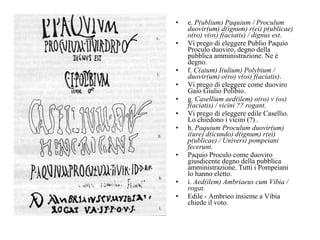 PAQVIVM
PROCVLVM
II VIR
PAQVIVM PROCVLVM II VIR
ROGAT
• e. P(ublium) Paquium / Proculum
duovir(um) d(ignum) r(ei) p(ublicae)
o(ro) v(os) f(aciatis) / dignus est.
• Vi prego di eleggere Publio Paquio
Proculo duoviro, degno della
pubblica amministrazione. Ne è
degno.
• f. C(aium) I(ulium) Polybium /
duovir(um) o(ro) v(os) f(aciatis).
• Vi prego di eleggere come duoviro
Gaio Giulio Polibio.
• g. Casellium aed(ilem) o(ro) v (os)
f(aciatis) / vicini ?? rogant.
• Vi prego di eleggere edile Casellio.
Lo chiedono i vicini (?) .
• h. Paquium Proculum duovir(um)
i(ure) d(icundo) d(ignum) r(ei)
p(ublicae) / Universi pompeiani
fecerunt.
• Paquio Proculo come duoviro
giusdicente degno della pubblica
amministrazione. Tutti i Pompeiani
lo hanno eletto.
• i. Aed(ilem) Ambriaeus cum Vibia /
rogat.
• Edile - Ambrieo insieme a Vibia
chiede il voto.